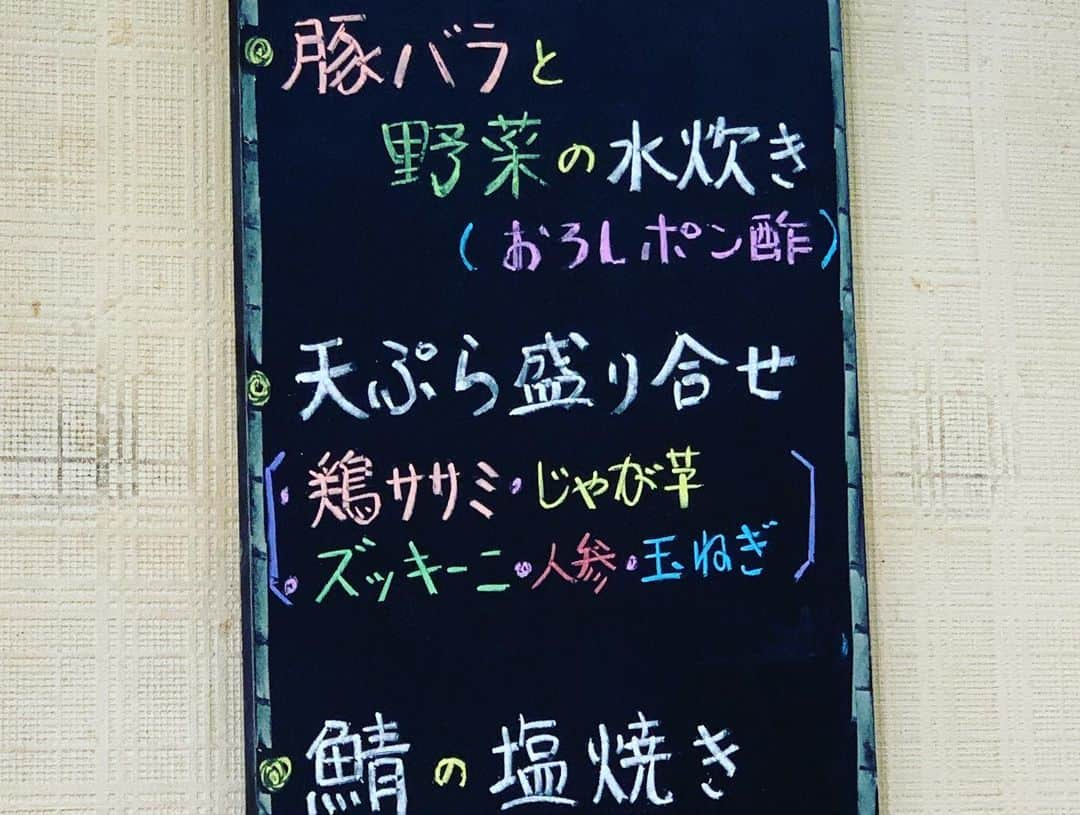 豚バラと
野菜の水炊き
(おろしポン酢)
天ぷら盛り合せ
・鶏ササミ・じゃが芋
・ズッキーニ・人参・玉ねぎ
鯖の塩焼き